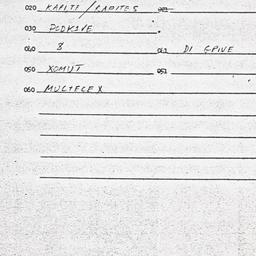 020 KAPITI / RADITES 021
030 PODKOVE
040 8 041 DI GPIVE
050 XOMUT 051
060 MULTECEX